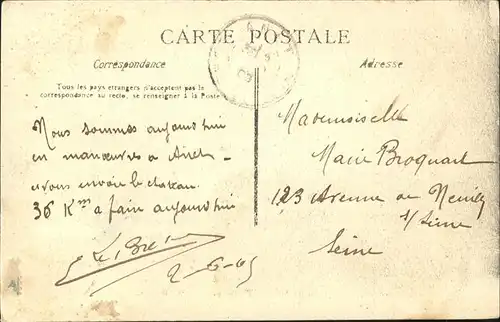 CARTE POSTALE
Correspondance
Adresse
Tous les pays étrangers n'acceptent pas la
correspondance au recto, se renseigner à la Poste
Nous sommes aujourd'hui
en manœuvres a
vous envoie le chateau
36 Km a faire aujourd'hui
2-6-05
Mademoiselle
Marie Broquart
123 Avenue de Neuilly
s/Seine
Seine